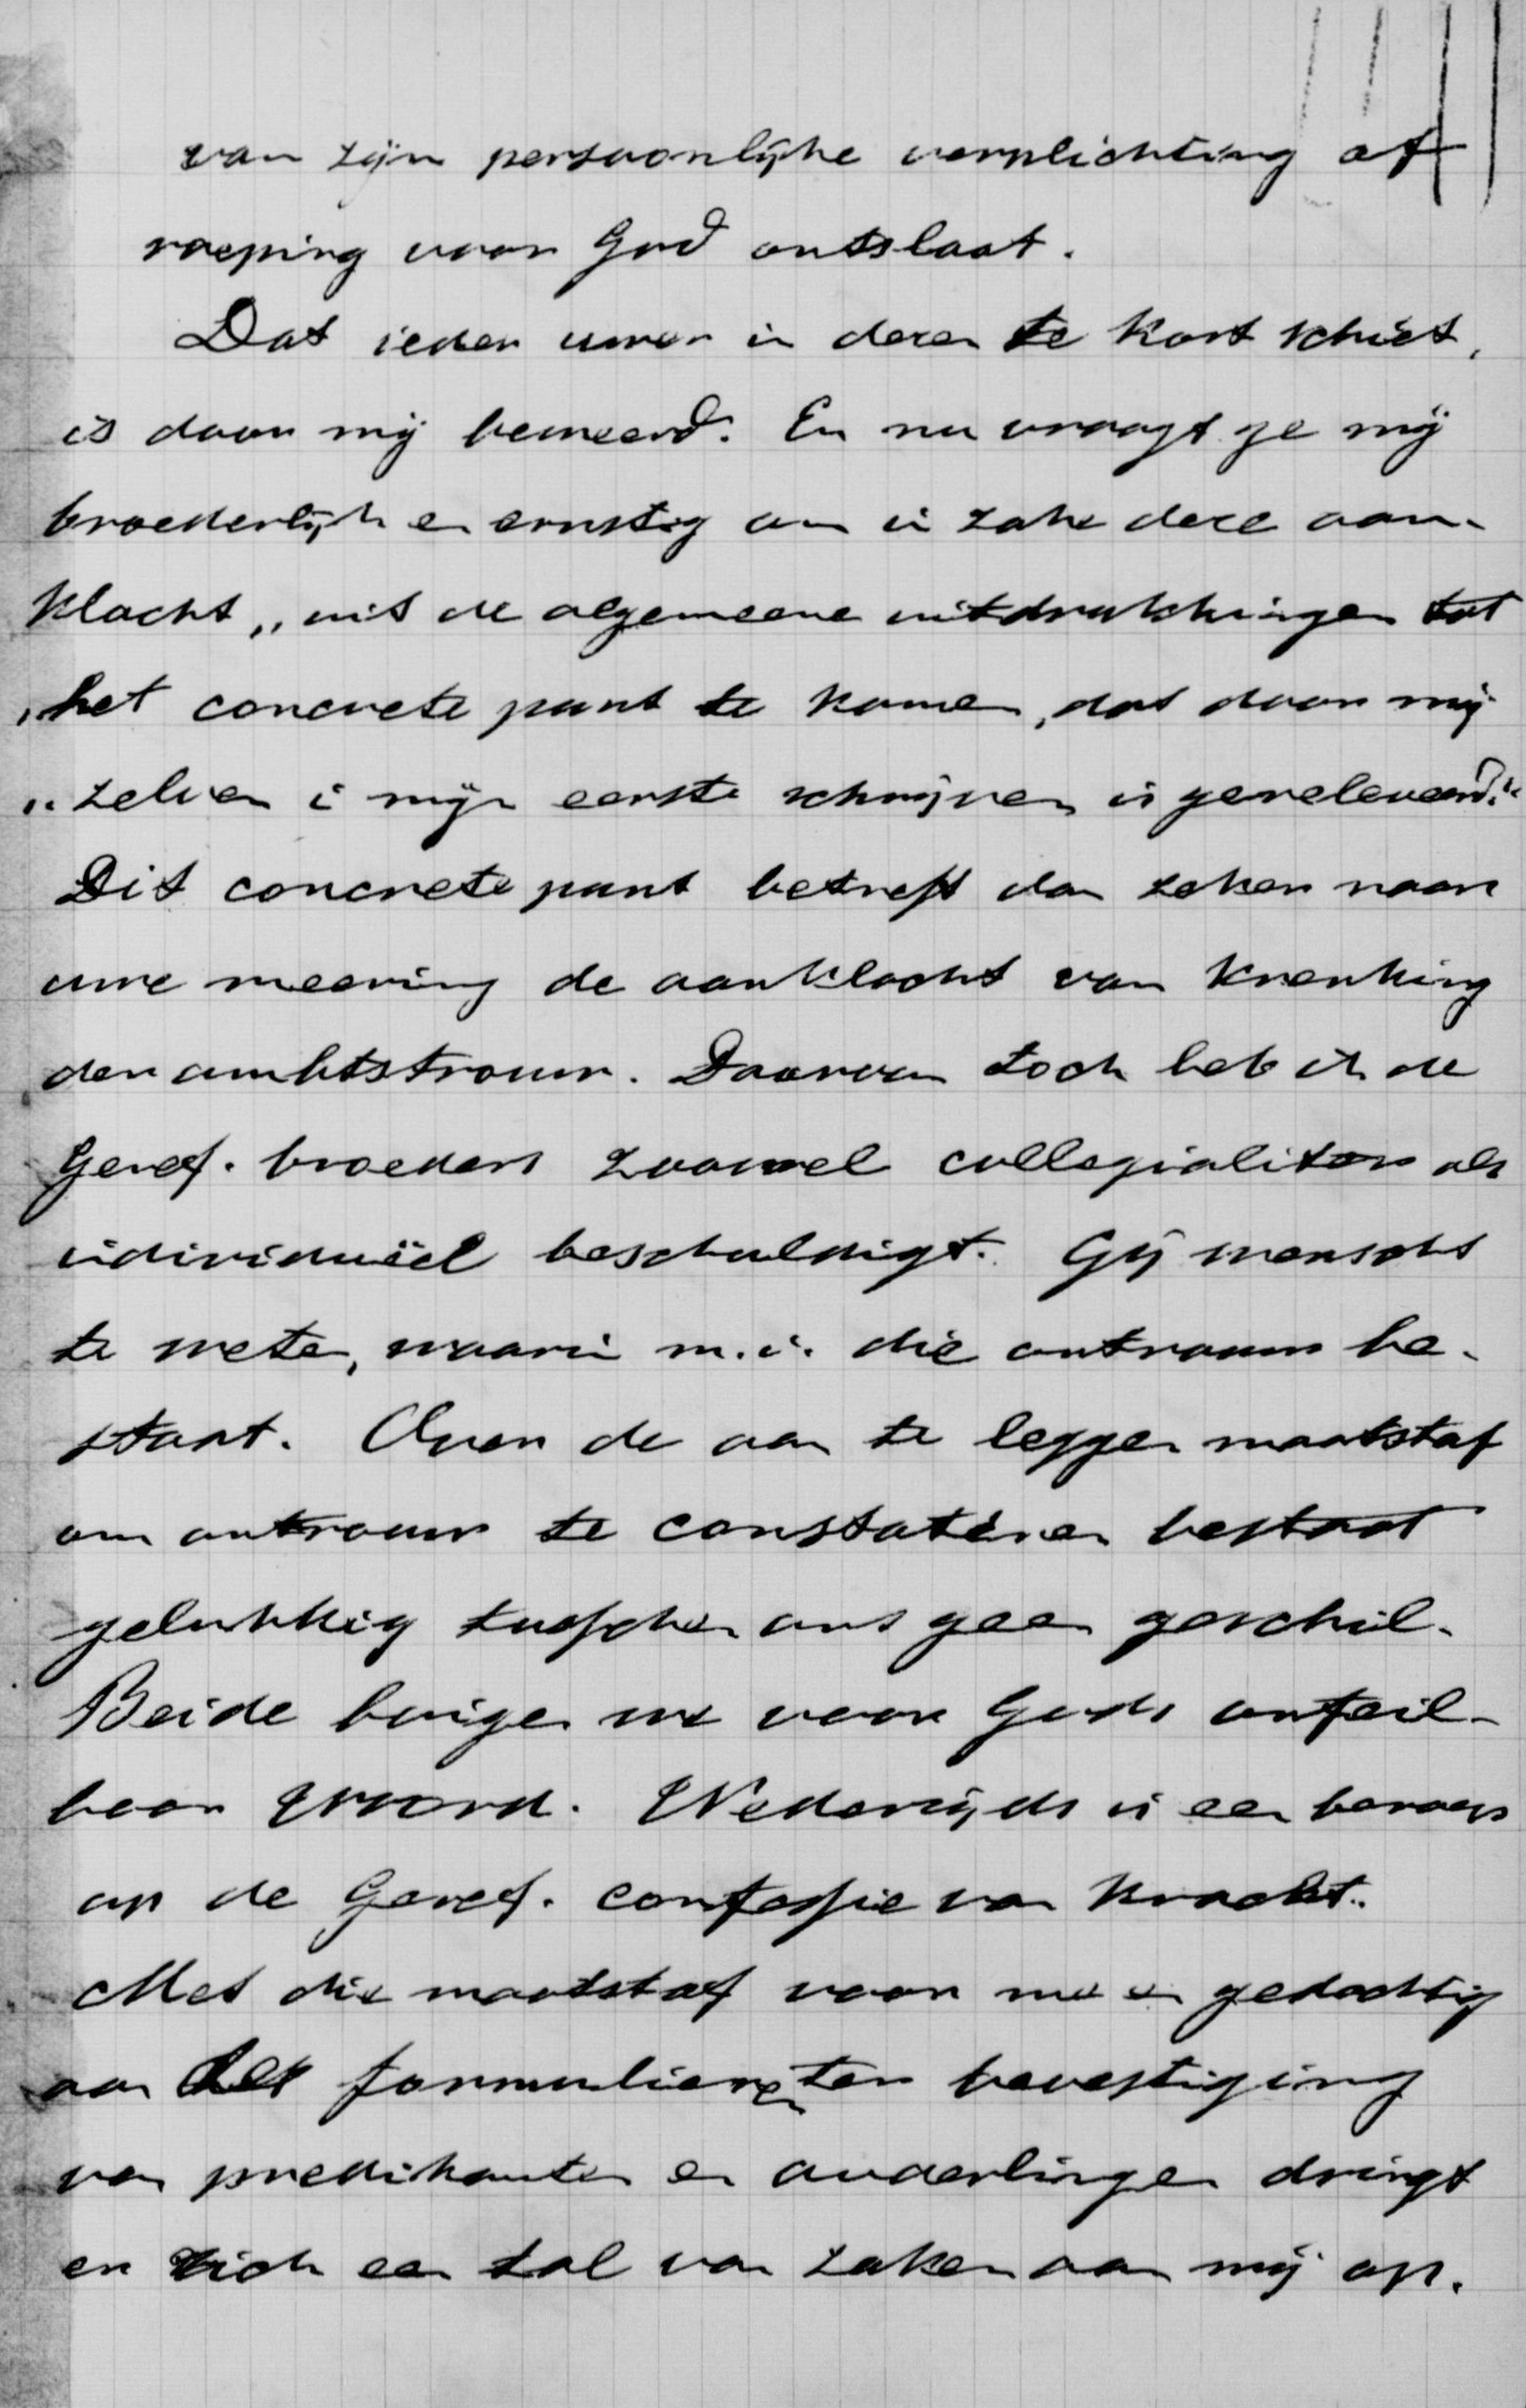 van zijn persoonlijke verplichting of
roeping voor God ontslaat.
Dat ieder uwer in dezen te kort schiet,
is door mij beweerd. En nu vraagt ge mij
broederlijk en ernstig om in zake deze aan-
klacht „uit de algemeene uitdrukkingen tot
„het concrete punt te komen, dat door mij-
„zelven in mijn eerste schrijven is gereleveerd."
Dit concrete punt betreft dan zeker naar
uwe meening de aanklacht van krenking
der ambtstrouw. Daarvan toch heb ik de
Geref. broeders zoowel collegialiter als
individuëel beschuldigt. Gij wenscht
te weten, waarin m.i. die ontrouw be-
staat. Over de aan te leggen maatstaf
om ontrouw te constateeren bestaat
gelukkig tusschen ons geen geschil.
Beide buigen we voor Gods onfeil-
baar Woord. Wederzijds is een beroep
op de Geref. confessie van kracht.
Met die maatstaf voor me en gedachtig
aan het formulieren ter bevestiging
van predikanten en ouderlingen dringt
er zich een tal van zaken aan mij op.